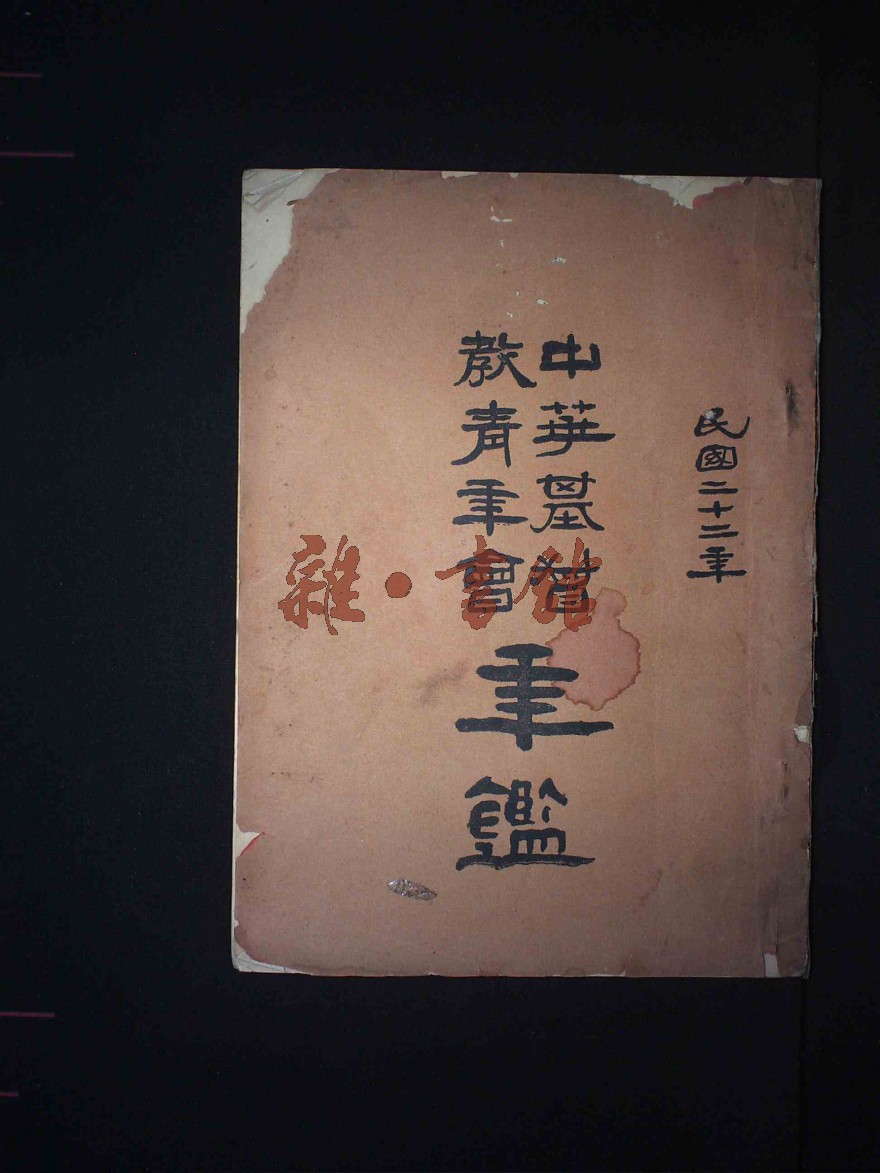 民國二十二年
中華基督
教青年會
年鑑
雜·書館